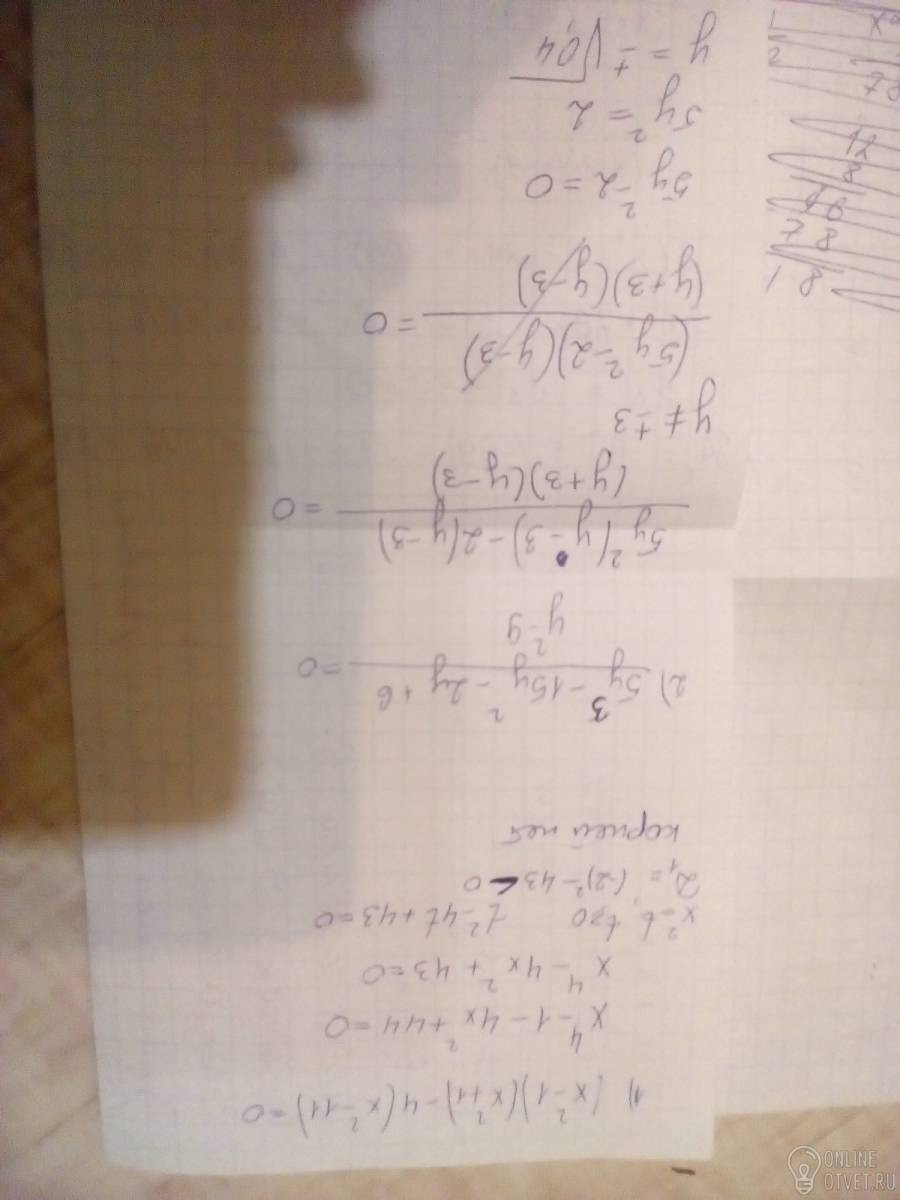 1) (x²-1)(x²+1)-4(x²-11)=0
x⁴-1-4x²+44=0
x⁴-4x²+43=0
x²=t t≥0 t²-4t+43=0
D₁=(-2)²-43<0
корней нет
2) 5y³-15y²-2y+6
y²-9
=0
5y²(y-3)-2(y-3)
(y+3)(y-3)
=0
y≠±3
(5y²-2)(y-3)
(y+3)(y-3)
=0
5y²-2=0
5y²=2
y=±√0,4
ONLINE
OTVET.RU